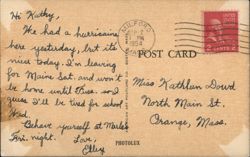 Hi Kathy,
We had a hurricane
here yesterday, but it's
nice today. I'm leaving
for Maine Sat. and won't
be home until Tues. so I
guess I'll be tired for school
Wed.
Behave yourself at Marks
Fri. night.
Love,
Elley
MILFORD
PM
1954
MASS.
2 CENTS 2
POST CARD
Miss Kathleen Dowd
North Main St.
Orange, Mass.
PHOTOLUX